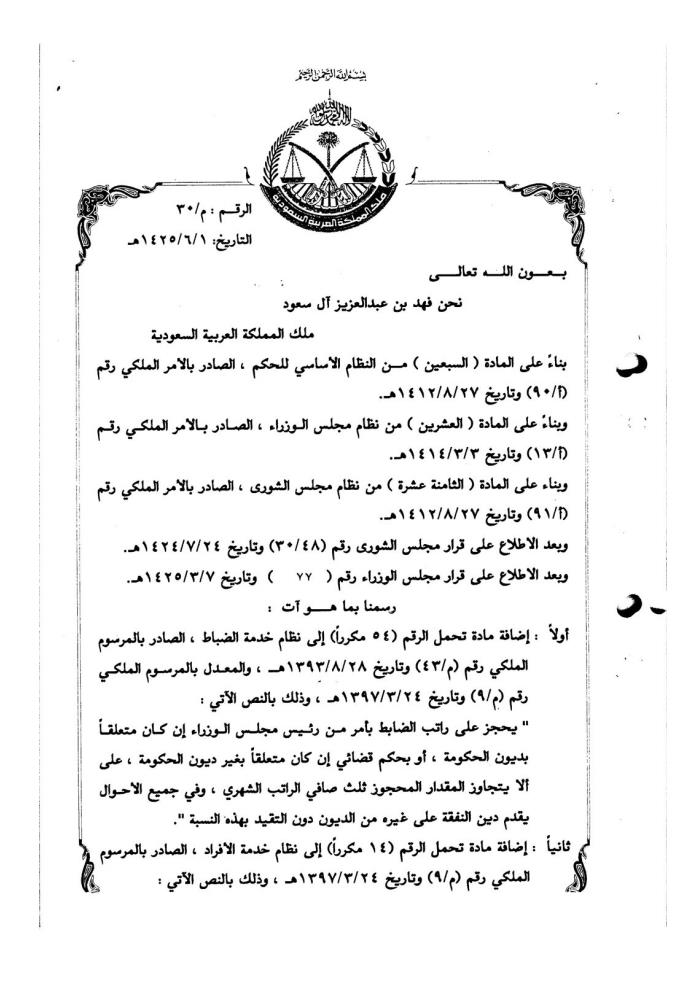 بسم الله الرحمن الرحيم
لا إله إلا الله محمد رسول الله
ملك المملكة العربية السعودية
الرقم : م/٣٠
التاريخ: ١٤٢٥/٦/١هـ
بـعـــون اللـــه تعالـــى
نحن فهد بن عبدالعزيز آل سعود
ملك المملكة العربية السعودية
بناءً على المادة ( السبعين ) مـــن النظام الأساسي للحكم ، الصادر بالأمر الملكي رقم
(أ/٩٠) وتاريخ ١٤١٢/٨/٢٧هـ.
وبناءً على المادة ( العشرين ) من نظام مجلس الـوزراء ، الصـادر بـالأمر الملكـي رقـم
(أ/١٣) وتاريخ ١٤١٤/٣/٣هـ.
وبناء على المادة ( الثامنة عشرة ) من نظام مجلس الشورى ، الصادر بالأمر الملكي رقم
(أ/٩١) وتاريخ ١٤١٢/٨/٢٧هـ.
وبعد الاطلاع على قرار مجلس الشورى رقم (٣٠/٤٨) وتاريخ ١٤٢٤/٧/٢٤هـ.
وبعد الاطلاع على قرار مجلس الوزراء رقم ( ٧٧ ) وتاريخ ١٤٢٥/٣/٧هـ.
رسمنا بما هـــو آت :
أولاً : إضافة مادة تحمل الرقم (٥٤ مكرراً) إلى نظام خدمة الضباط ، الصادر بالمرسوم
الملكي رقم (م/٤٣) وتاريخ ١٣٩٣/٨/٢٨هـ ، والمعدل بالمرسوم الملكـي
رقم (م/٩) وتاريخ ١٣٩٧/٣/٢٤هـ ، وذلك بالنص الآتي :
" يحجز على راتب الضابط بأمر مـن رئـيس مجلـس الـوزراء إن كـان متعلقـاً
بديون الحكومة ، أو بحكم قضائي إن كان متعلقاً بغير ديون الحكومة ، على
ألا يتجاوز المقدار المحجوز ثلث صافي الراتب الشهري ، وفي جميع الأحـوال
يقدم دين النفقة على غيره من الديون دون التقيد بهذه النسبة ".
ثانياً : إضافة مادة تحمل الرقم (١٤ مكرراً) إلى نظام خدمة الأفراد ، الصادر بالمرسوم
الملكي رقم (م/٩) وتاريخ ١٣٩٧/٣/٢٤هـ ، وذلك بالنص الآتي :